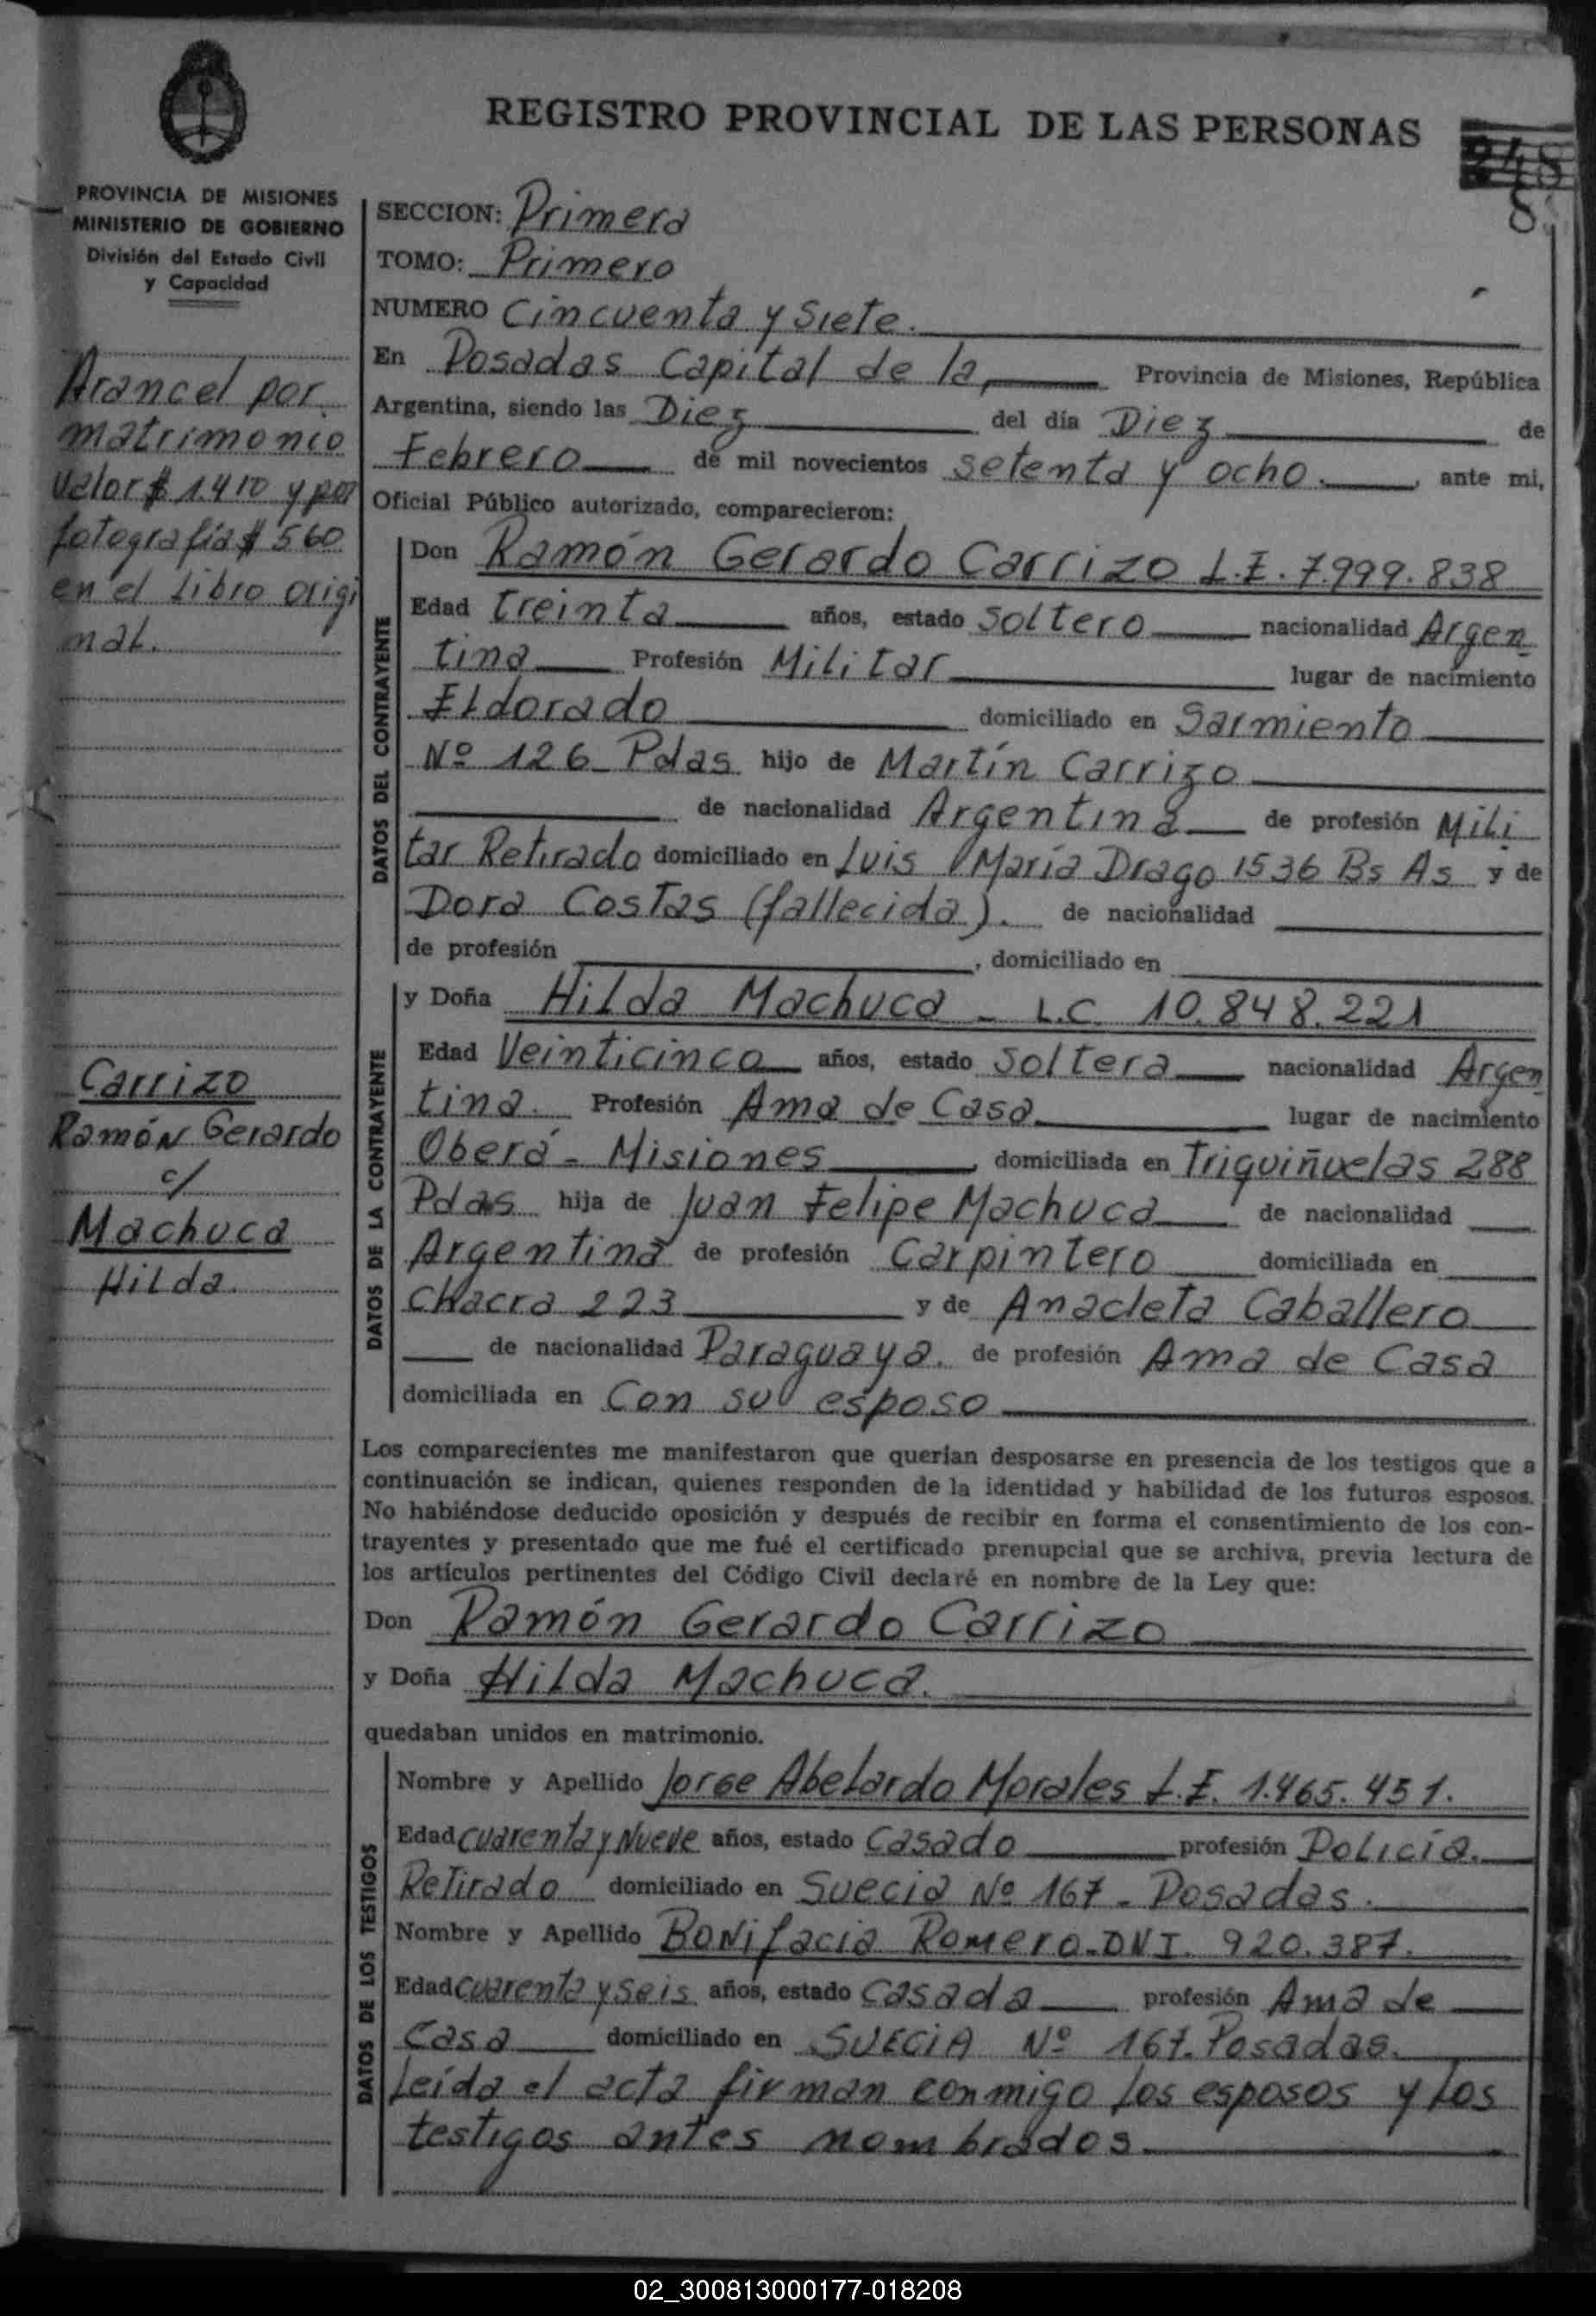 REGISTRO PROVINCIAL DE LAS PERSONAS
248
8
PROVINCIA DE MISIONES
MINISTERIO DE GOBIERNO
División del Estado Civil
y Capacidad
Arancel por
matrimonio
valor $ 1.410 y por
fotografía $ 560
en el Libro origi
nal.
Carrizo
Ramón Gerardo
c/
Machuca
Hilda.
SECCION: Primera
TOMO: Primero
NUMERO Cincuenta y Siete.
En Posadas Capital de la, Provincia de Misiones, República
Argentina, siendo las Diez del día Diez de
Febrero de mil novecientos setenta y ocho. , ante mi,
Oficial Público autorizado, comparecieron:
DATOS DEL CONTRAYENTE
Don Ramón Gerardo Carrizo L.E. 7.999.838
Edad treinta años, estado Soltero nacionalidad Argen
tina Profesión Militar lugar de nacimiento
Eldorado domiciliado en Sarmiento
Nº 126 Pdas hijo de Martín Carrizo
de nacionalidad Argentina de profesión Mili
tar Retirado domiciliado en Luis María Drago 1536 Bs As y de
Dora Costas (fallecida). de nacionalidad
de profesión , domiciliado en
DATOS DE LA CONTRAYENTE
y Doña Hilda Machuca - L.C. 10.848.221
Edad Veinticinco años, estado Soltera nacionalidad Argen
tina. Profesión Ama de Casa lugar de nacimiento
Oberá - Misiones , domiciliada en Triguiñuelas 288
Pdas hija de Juan Felipe Machuca de nacionalidad
Argentina de profesión Carpintero domiciliada en
Chacra 223 y de Anacleta Caballero
de nacionalidad Paraguaya. de profesión Ama de Casa
domiciliada en Con su esposo
Los comparecientes me manifestaron que querían desposarse en presencia de los testigos que a
continuación se indican, quienes responden de la identidad y habilidad de los futuros esposos.
No habiéndose deducido oposición y después de recibir en forma el consentimiento de los con-
trayentes y presentado que me fué el certificado prenupcial que se archiva, previa lectura de
los artículos pertinentes del Código Civil declaré en nombre de la Ley que:
Don Ramón Gerardo Carrizo
y Doña Hilda Machuca.
quedaban unidos en matrimonio.
DATOS DE LOS TESTIGOS
Nombre y Apellido Jorge Abelardo Morales L.E. 1.465.451.
Edad cuarenta y Nueve años, estado Casado profesión Policía.
Retirado domiciliado en Suecia Nº 167 - Posadas.
Nombre y Apellido Bonifacia Romero. DNI. 920.387.
Edad cuarenta y seis años, estado Casada profesión Ama de
Casa domiciliado en SUECIA Nº 167. Posadas.
Leída el acta firman conmigo los esposos y los
testigos antes nombrados.
02_300813000177-018208